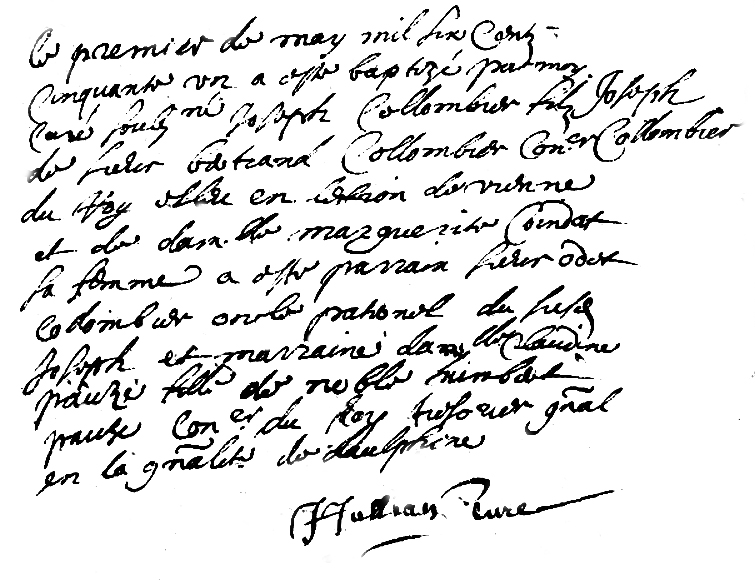 le premier de may mil six centz
cinquante un a este baptizé par moy
curé soubz né Joseph Collombier filz Joseph
de sieur bertrand Collombier con.er Collombier
du Roy esleu en lestion de vienne
et de dam.lle marguerite Coindat
sa femme a esté parrain sieur odet
Colombier oncle paternel du susd
Joseph et marraine dam.lle Claudine
pauze fille de noble
pauze con.er du Roy tresorier gnãl
en la gnãlité de daulphine
Jullian Cure